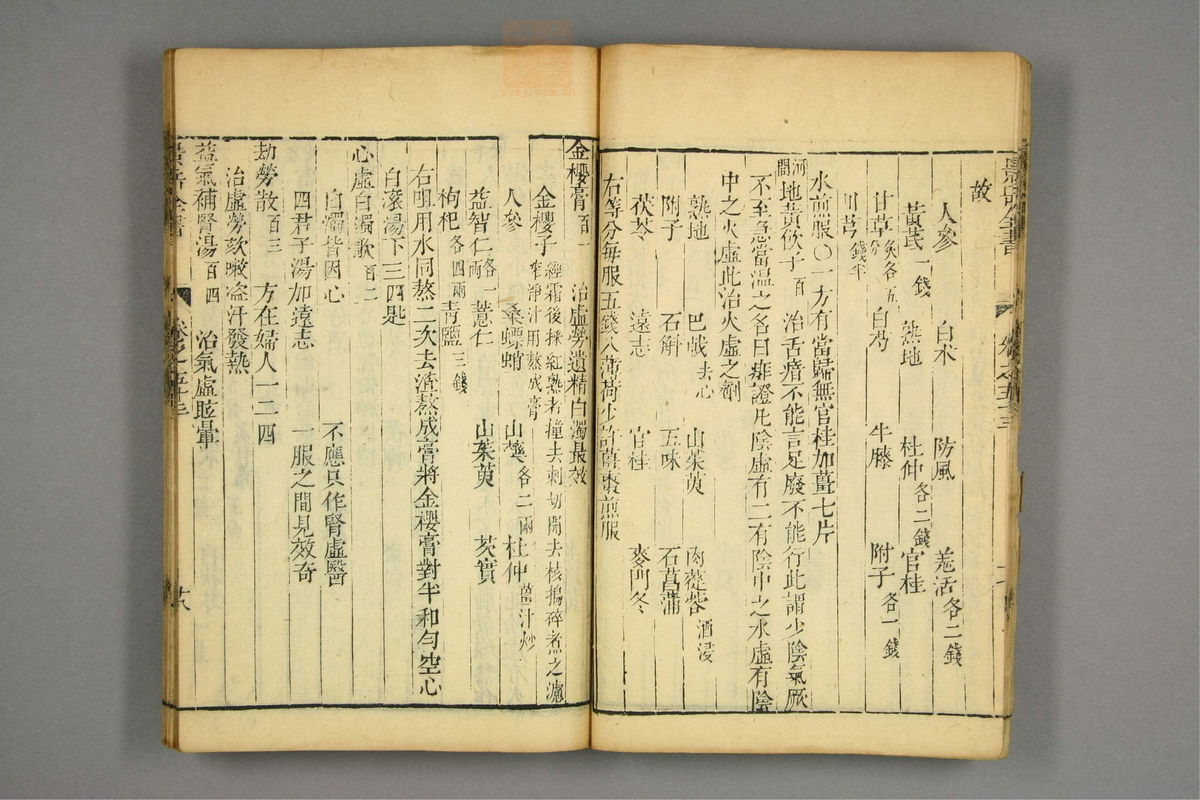 景岳全書 卷之五十三
故
人參 白朮 防風 羗活各二錢
黃芪一錢 熟地 杜仲各二錢 官桂
甘草炙各五分 白芍 牛膝 附子各一錢
川芎錢半
水煎服〇一方有當歸無官桂加薑七片
河間地黃飲子百 治舌瘖不能言足廢不能行此謂少陰氣厥
不至急當溫之名曰痱證凡陰虛有二有陰中之水虛有陰
中之火虛此治火虛之劑
熟地 巴戟去心 山茱萸 肉蓯蓉酒浸
附子 石斛 五味 石菖蒲
茯苓 遠志 官桂 麥門冬
右等分每服五錢入薄荷少許薑棗煎服
金櫻膏百一 治虛勞遺精白濁最效
金櫻子經霜後採紅熟者撞去刺切開去核搗碎煮之濾榨淨汁用熬成膏
人參 桑螵蛸 山藥各二兩 杜仲薑汁炒
益智仁各一兩 薏仁 山茱萸 芡實
枸杞各四兩 青鹽三錢
右咀用水同熬二次去渣熬成膏將金櫻膏對半和勻空心
白滾湯下三四匙
心虛白濁歌百二
白濁皆因心 不應只作腎虛醫
四君子湯加遠志 一服之間見效奇
劫勞散百三 方在婦人一二四
治虛勞欬嗽盜汗發熱
益氣補腎湯百四 治氣虛眩暈
景岳全書 卷之五十三 廿八